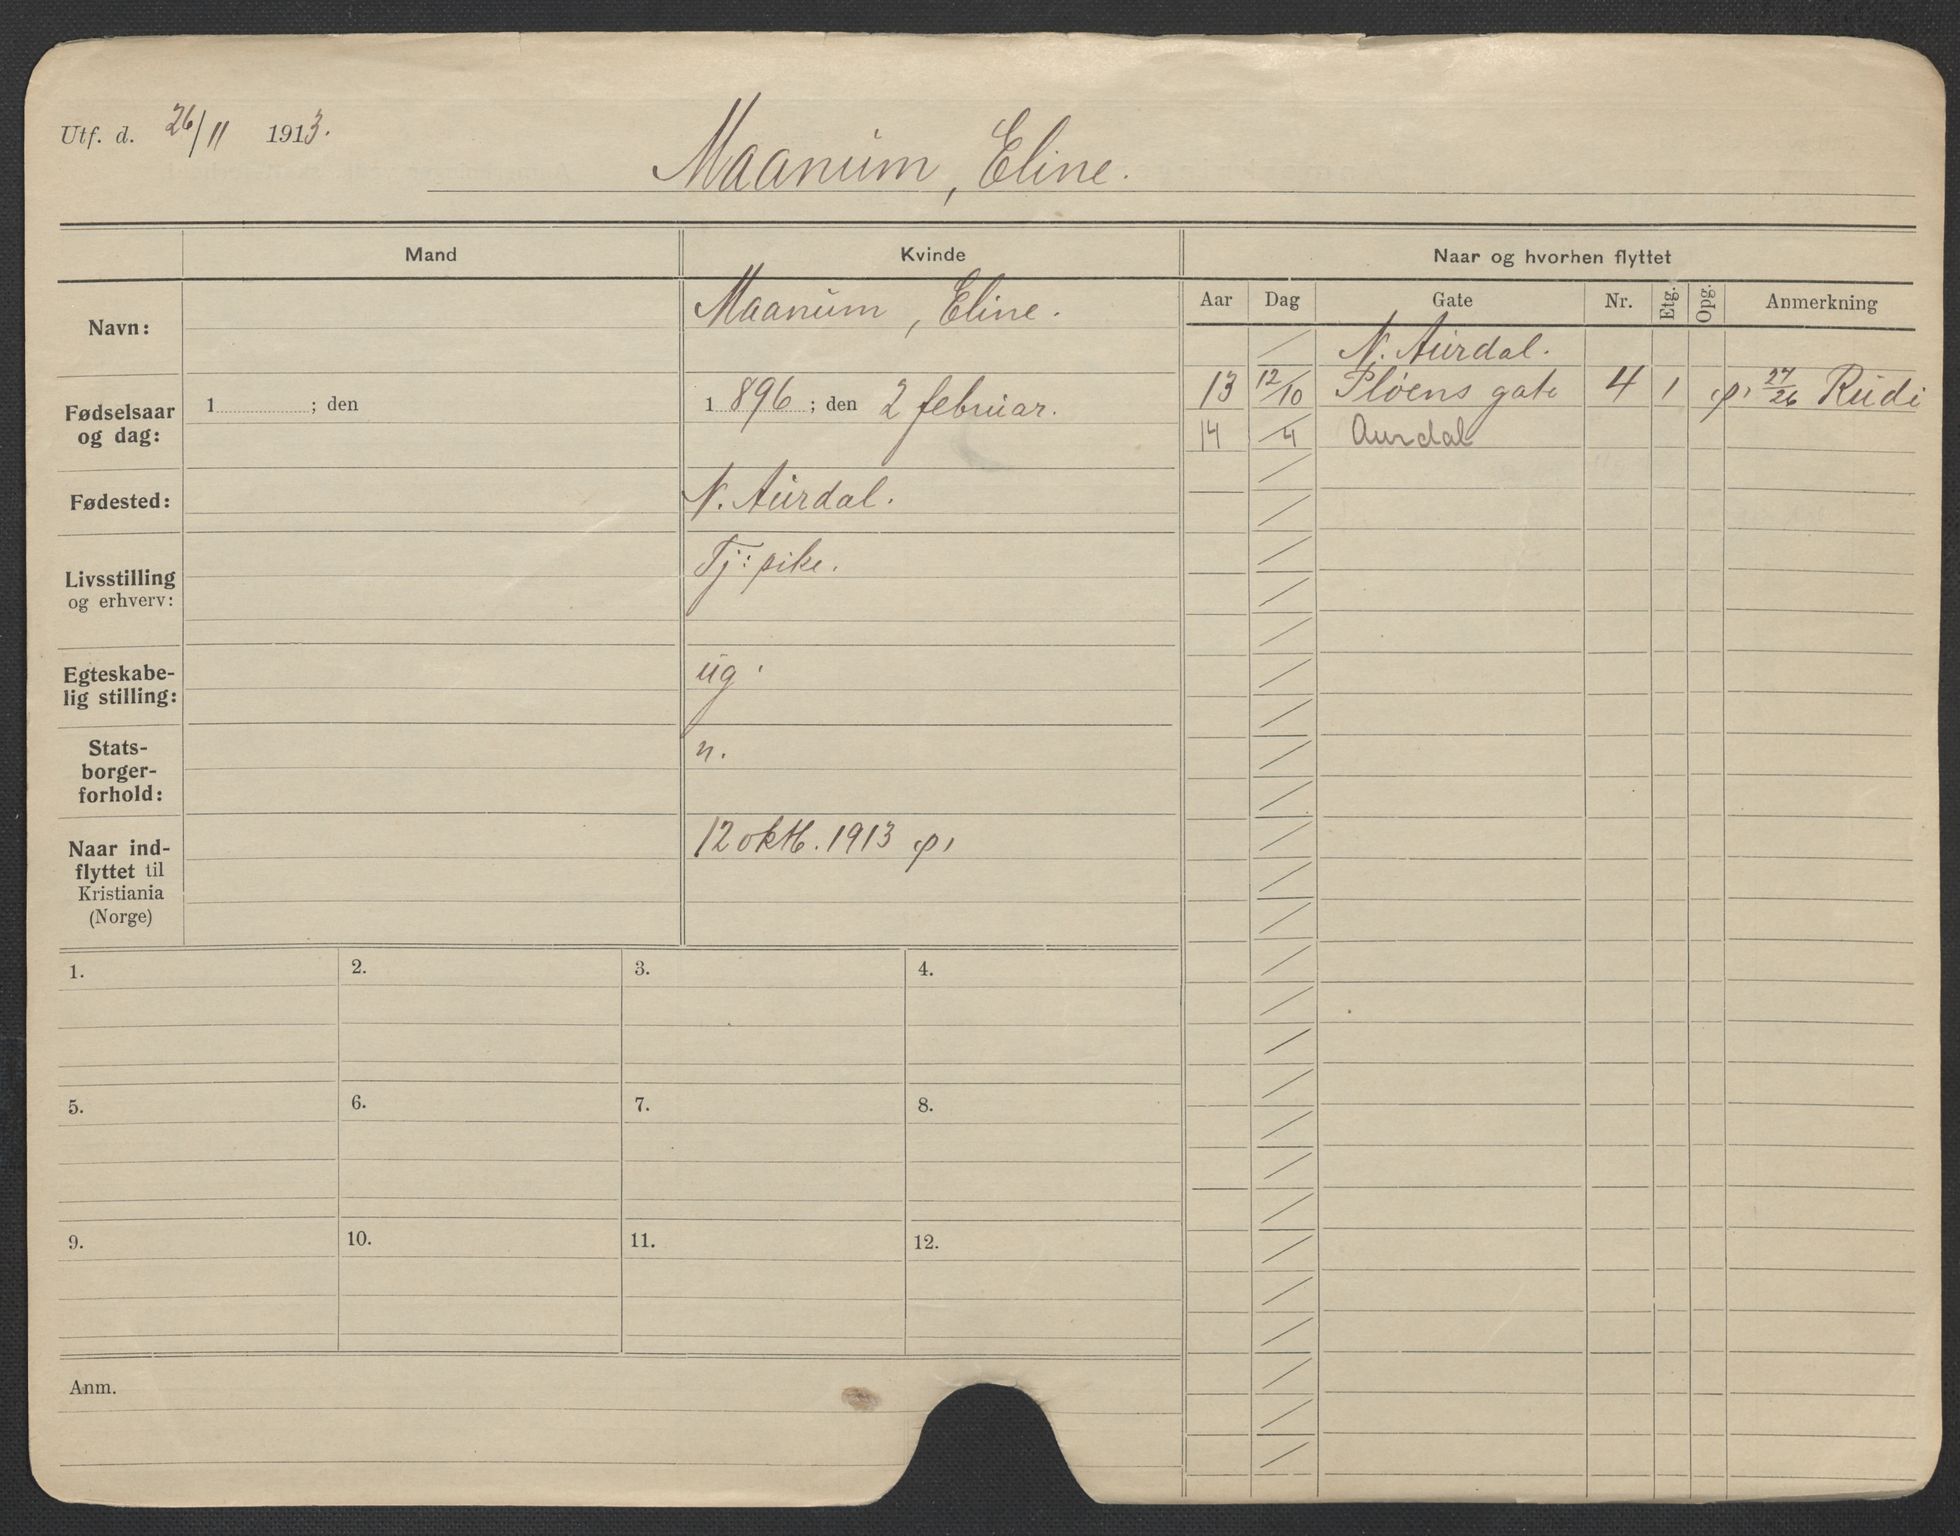 Utf. d. 26/11 1913.
Maanum, Eline.
Mand
Kvinde
Naar og hvorhen flyttet
Aar Dag Gate Nr. Etg. Opg. Anmerkning
Navn:
Maanum, Eline.
Fødselsaar
og dag:
1 ; den
1896 ; den 2 februar.
Fødested:
N. Aurdal.
Livsstilling
og erhverv:
Tj: pike.
Egteskabe-
lig stilling:
ug.
Stats-
borger-
forhold:
n.
Naar ind-
flyttet til
Kristiania
(Norge)
12 oktb. 1913
N. Aurdal.
13 12/10 Pløens gate 4 1 27/26 Rudi
14 /4 Aurdal
1.
2.
3.
4.
5.
6.
7.
8.
9.
10.
11.
12.
Anm.